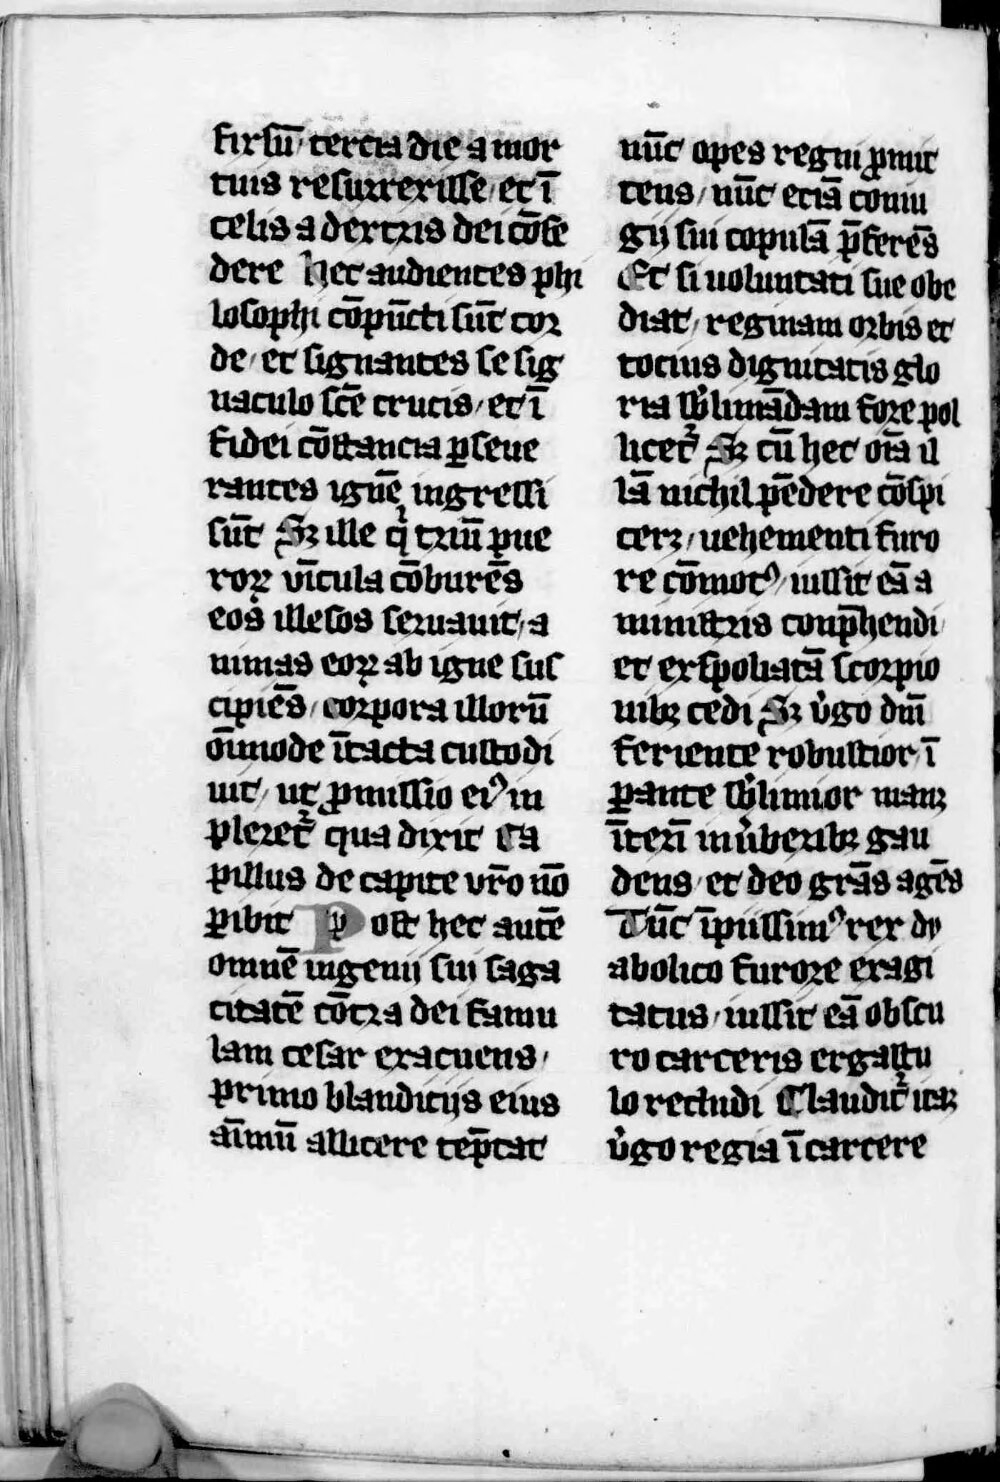 firsū / tercia die a mor
tuis resurrexisse / et ī
celis a dextris dei cōse
dere hec audientes phi
losophi cōpūcti sūt cor
de / et signantes se sig
naculo scē crucis / et ī
fidei cōstancia ꝑseue
rantes ignē ingressi
sūt Sꝫ ille q̄ triū pue
roꝝ vīcula cōburēs
eos illesos seruauit / a
nimas eoꝝ ab igne sus
cipiēs / corpora illorū
ōīmode ītacta custodi
uit / ut ꝓmissio eiꝰ in
pleret᷑ qua dixit Ca
pillus de capite vr̄o nō
ꝑibit Post hec autē
omnē ingenij sui saga
citatē cōtra dei famu
lam cesar exacuens /
primo blandicijs eius
aīmū allicere tēptat
nūc opes regni ꝓmit
tens / nūc eciā coniu
gij sui copulā p̄ferēs
Et si uoluntati sue obe
diat / reginam orbis et
tocius dignitatis glo
ria sb̓limādam fore pol
licet᷑ Sꝫ cū hec oīa il
lā nichil pēdere cōspi
ceꝛꝫ / uehementi furo
re cōmotꝰ / iussit eā a
ministris conp̄hendi
et exspoliatā scorpio
nibꝫ cedi Sꝫ v̓go dm̄
feriente robustior / ī
ꝑante sb̓limior manꝫ
īteri in v̓beribꝫ gau
dens / et deo grās agēs
Tūc īpijssimꝰ rex dy
abolico furore exagi
tatus / iussit eā obscu
ro carceris ergastu
lo recludi Claudit᷑ itaꝫ
v̓go regia ī carcere